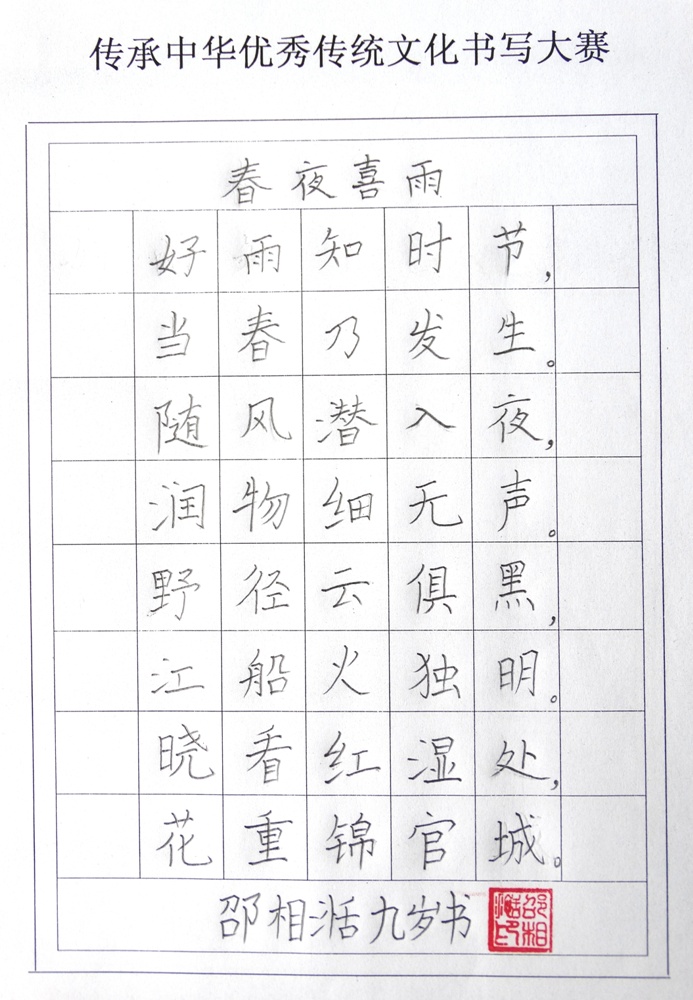 传承中华优秀传统文化书写大赛
春夜喜雨
好雨知时节，
当春乃发生。
随风潜入夜，
润物细无声。
野径云俱黑，
江船火独明。
晓看红湿处，
花重锦官城。
邵相湉九岁书